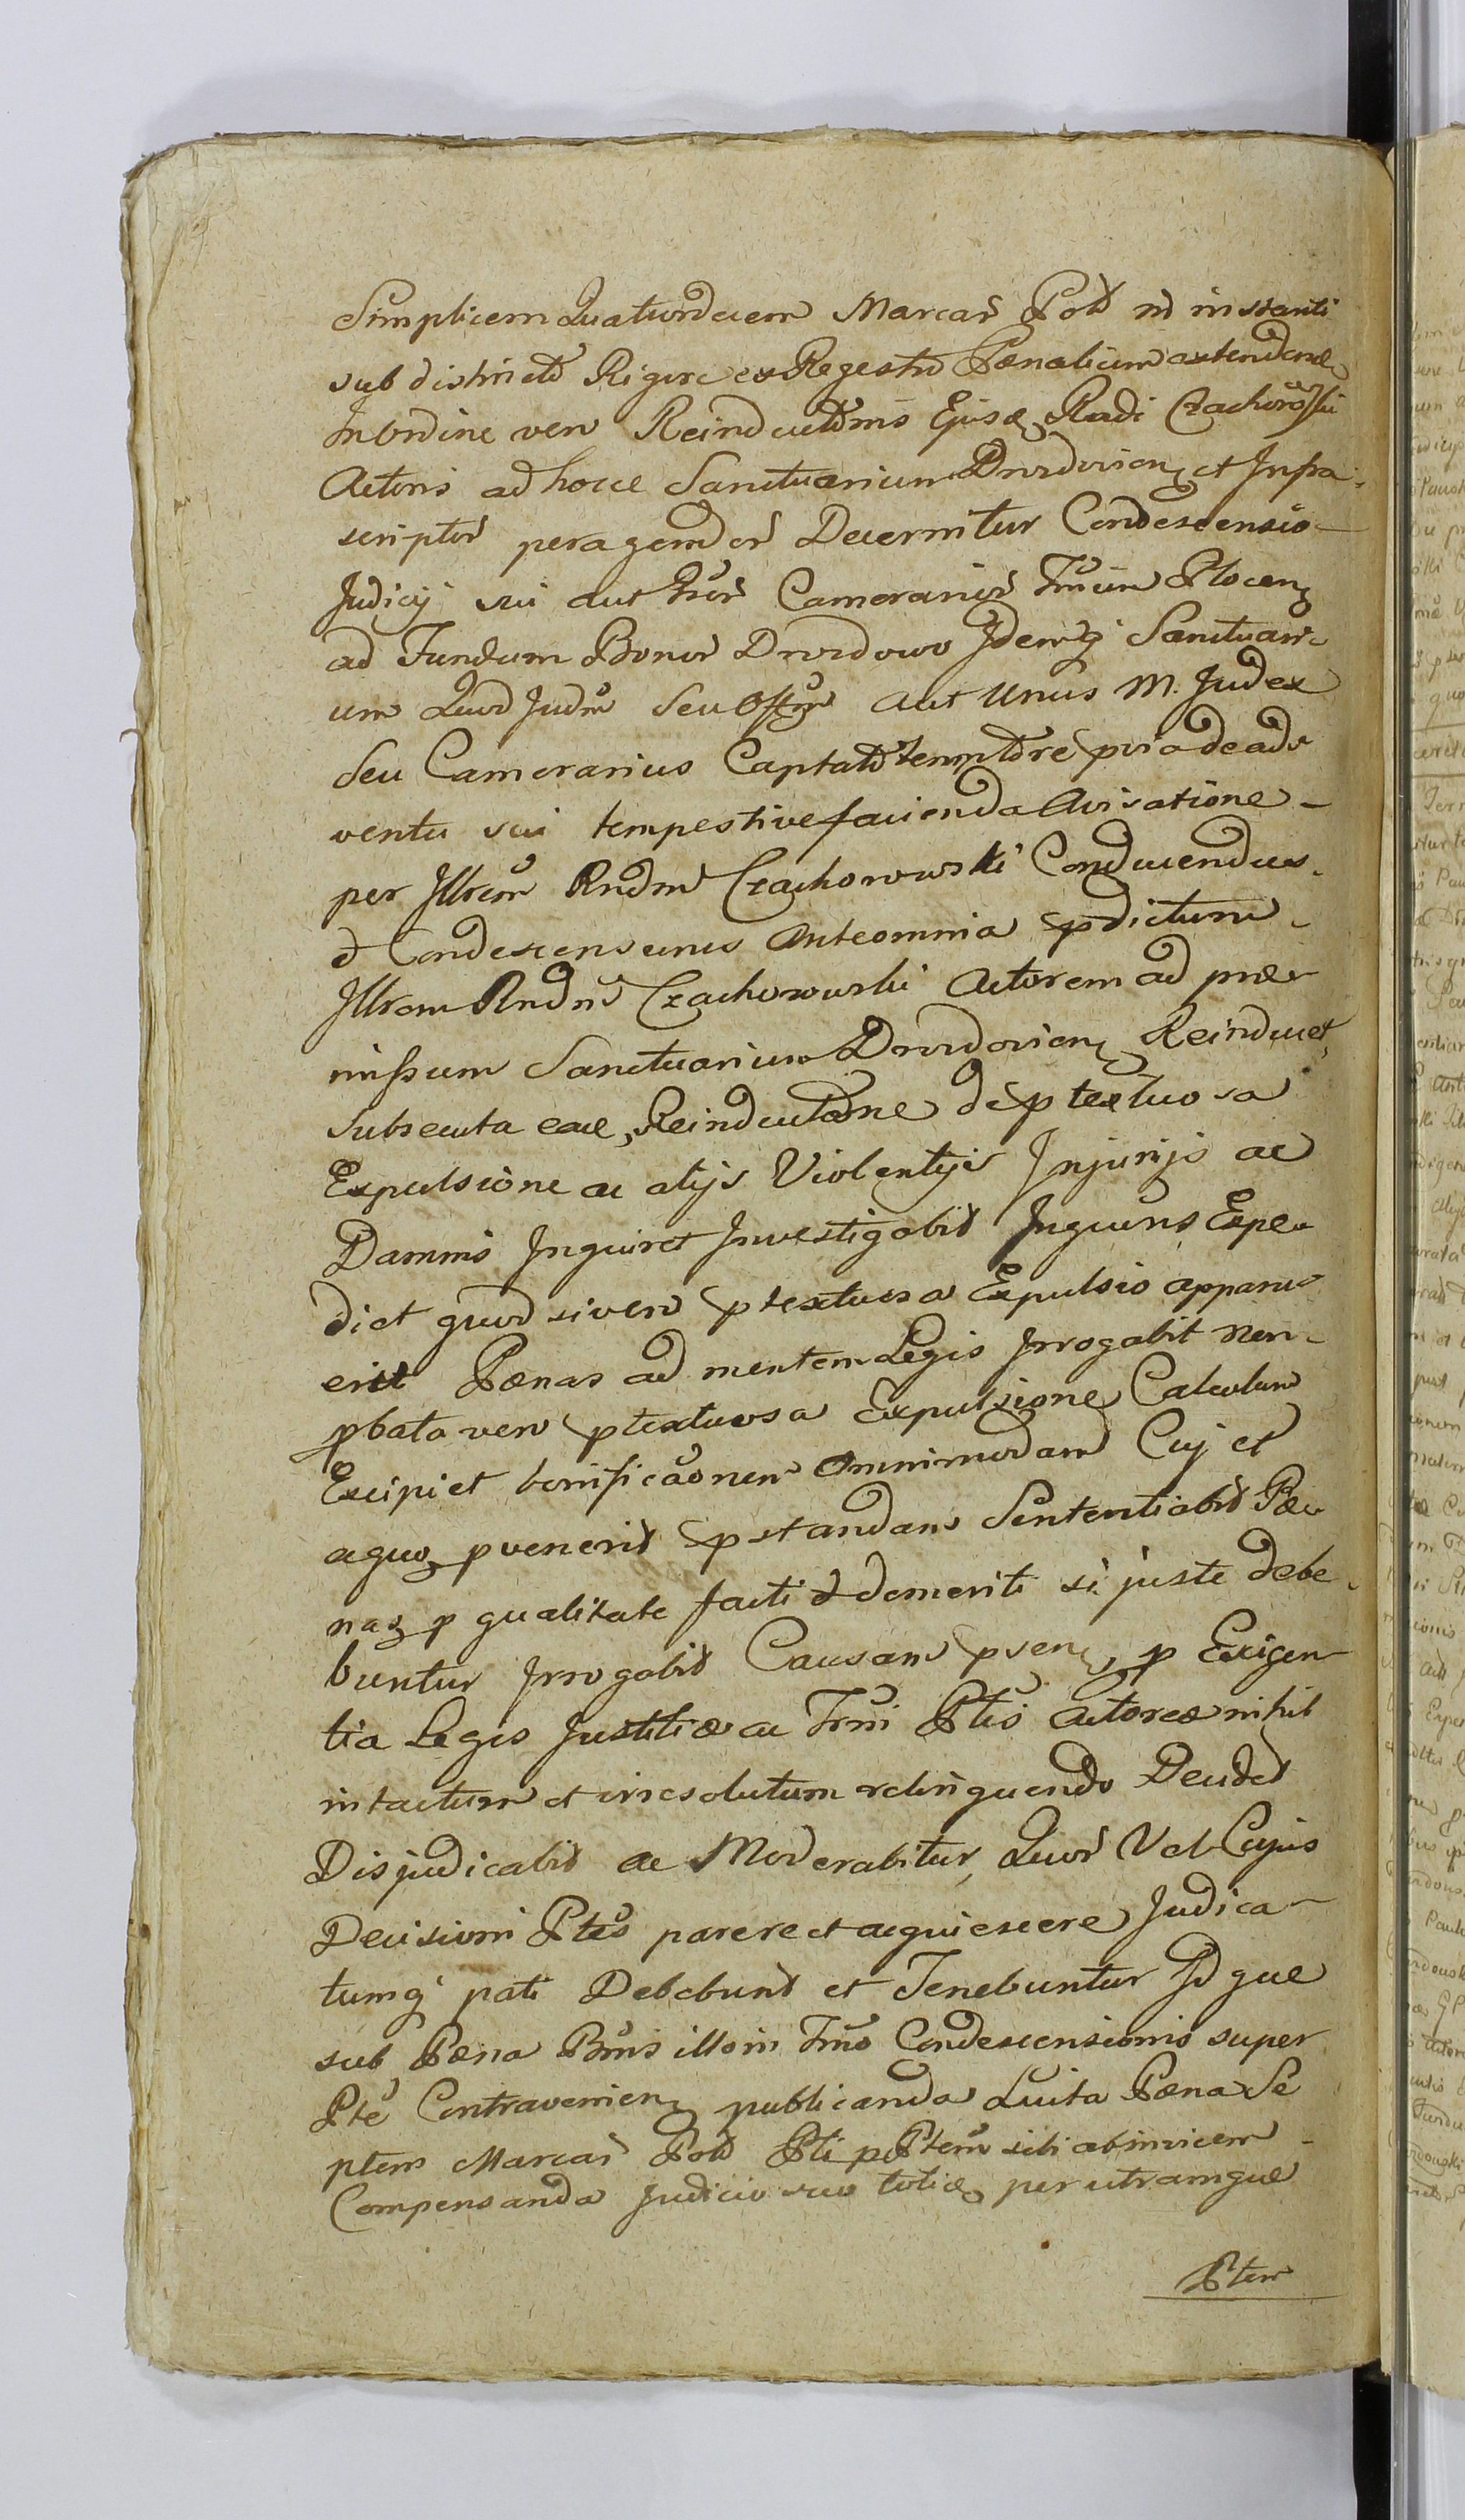 Simplicem Quatuordecem Marcar̃ Pol̃ in instanti
sub districto Rigore ex Regestro Pœnalium extenden̄
In ordine vero Reinductõnis Ejusq̃ Rndi Czachorõski
Actoris ad hocce Sanctuarium Drozdovien̄ et Infra
scriptor̃ peragendor̃ Decernitur Condescensio
Judicij sui aut Camerarior̃ Plocen̄
ad Fundum Bonor̃ Drozdowo Idemq̃ Sanctuari
um Quod Judm̃ Seu Offm̃ aut Unus M. Judex
Seu Camerarius Captato Tempõre pvia de ad
ventu sui tempestive facienda Avisatione
per Illrem Rndm̃ Czachorowski Conducendus
& Condescensurus Anteomnia pdictum
Illrem Rndm̃ Czachorowski Actorem ad præ
missum Sanctuarium Drozdovien̄ Reinducet,
Subsecuta eaq̃ Reinductõne de ptextuosa
Expulsione ac alijs Violentijs Injurijs ac
Damnis Inquiret Investigabit Inquens Expe
diet quod si vero ptextuosa Expulsio apparu
erit Pœnas ad mentem Legis Irrogabit non
pbata vero ptextuosa Expulsione Calculum
Excipiet bonificãonem Omnimodam Cuj et
aquoq̃ pvenerit pstandam Sententiabit Pœ
nasq̃ p qualitate facti & demeriti si juste debe
buntur Irrogabit Causam psen̄ p Exigen
tia Legis Justitiæ ac Trm̃i Ptis Actoreæ nihil
intactum et irresolutum relinquendo Decidet
Disjudicabit ac Moderabitur, Quor̃ Vel Cujus
Decisioni Ptes parere et acquiescere Judica
tumq̃ pati Debebunt et Tenebuntur Idque
sub Pœna Bm̃is illo in Trm̃o Condescensionis super
Pte Contravenien̄ publicanda Luita Pœna Se
ptem Marcar̃ Pol̃ Pti p Ptem sibi abinvicem
Compensanda Judicio suo toties per utramque
Ptem